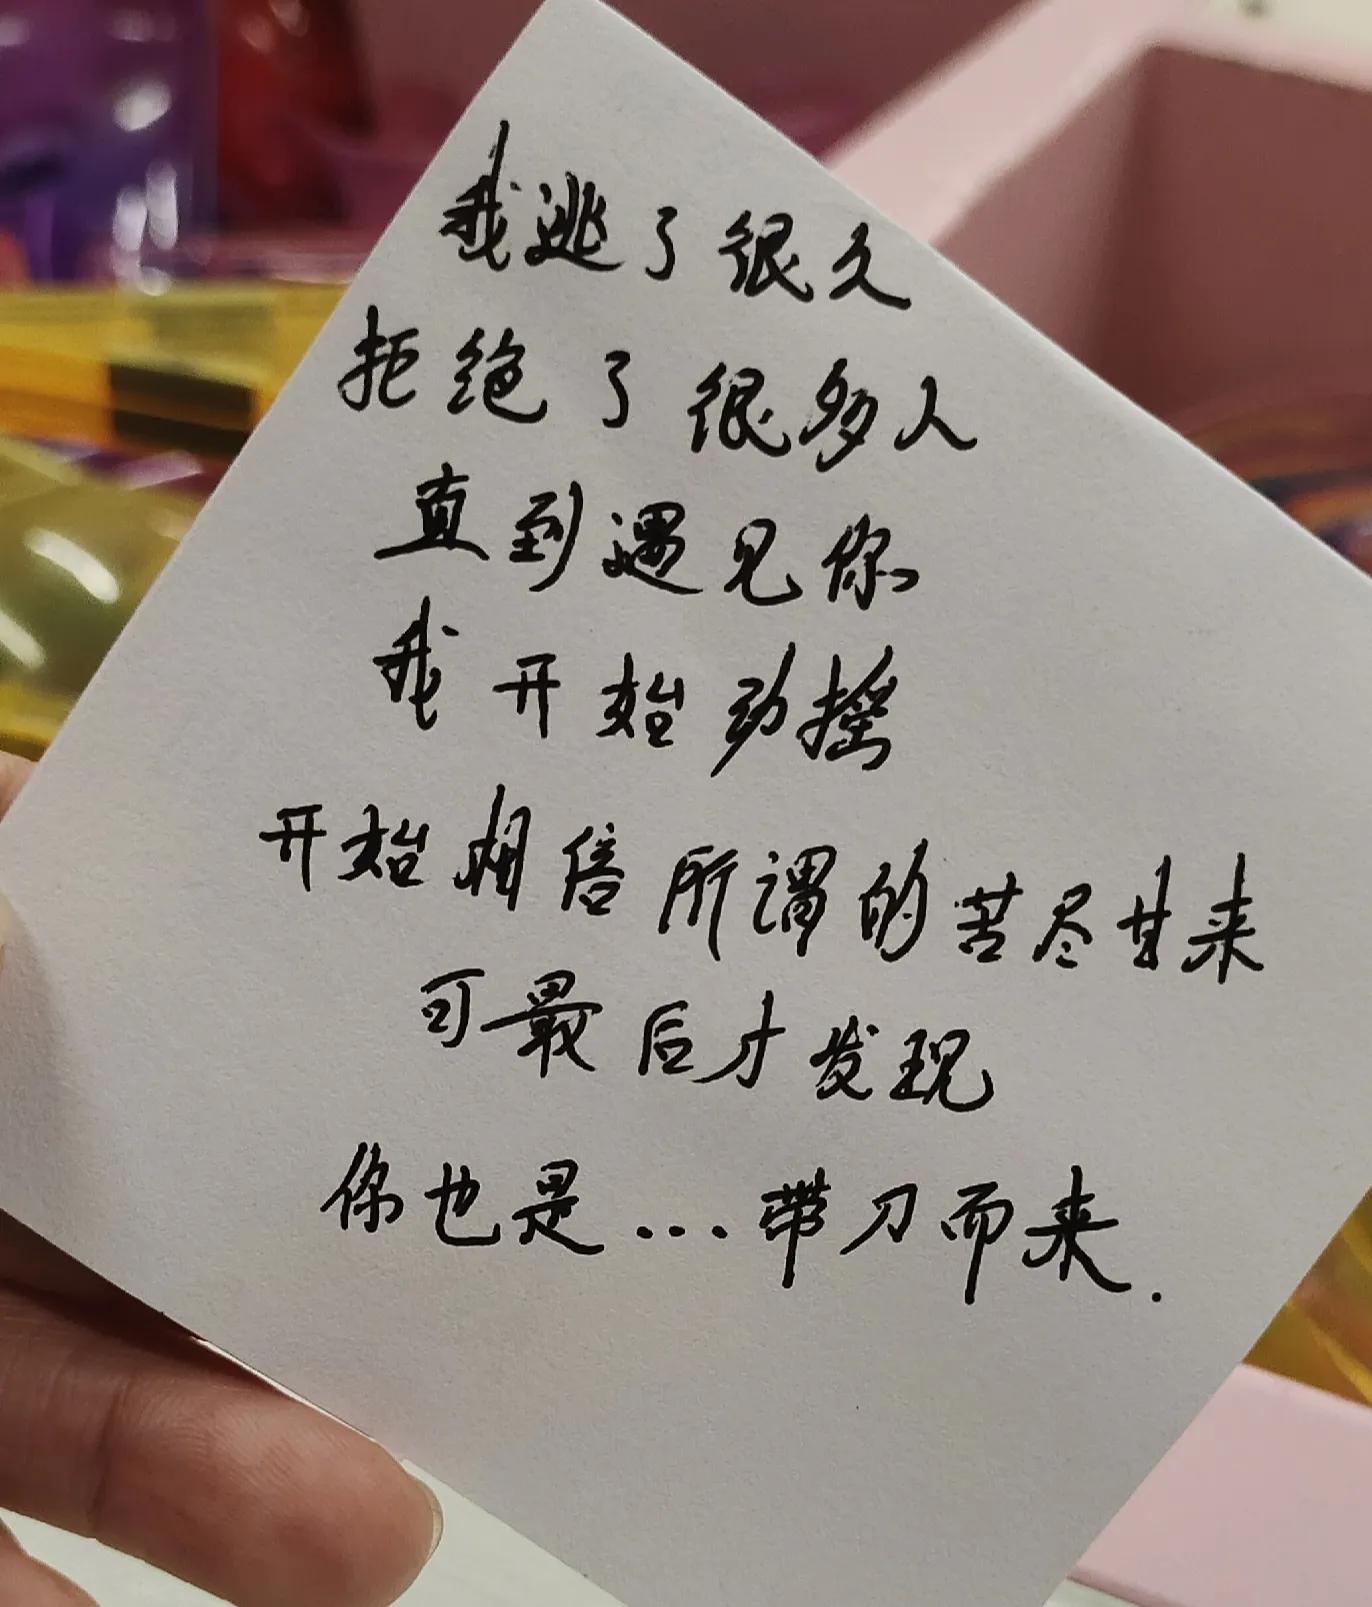 我逃了很久
拒绝了很多人
直到遇见你
我开始动摇
开始相信所谓的苦尽甘来
可最后才发现
你也是...带刀而来.